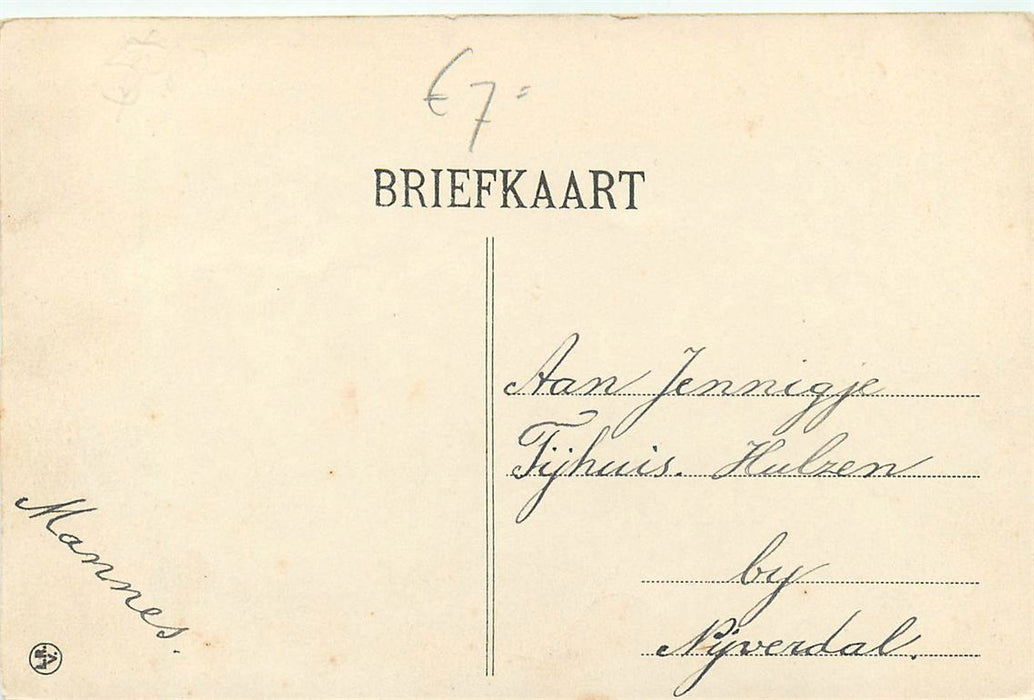 € 7=
BRIEFKAART
Aan Jennigje
Tijhuis. Hulzen
by
Nijverdal.
Mannes.